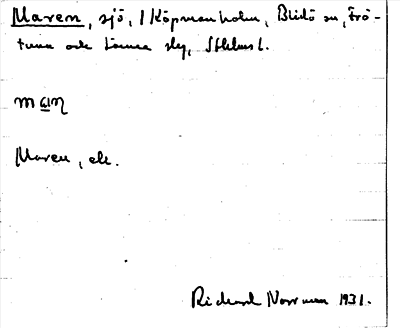 Maren, sjö, / Köpmanholm, Blidö sn, Frö-
tuna och Länna slg, Sthlms l.
maɳ
Maren, ek.
Richard Norrman 1931.